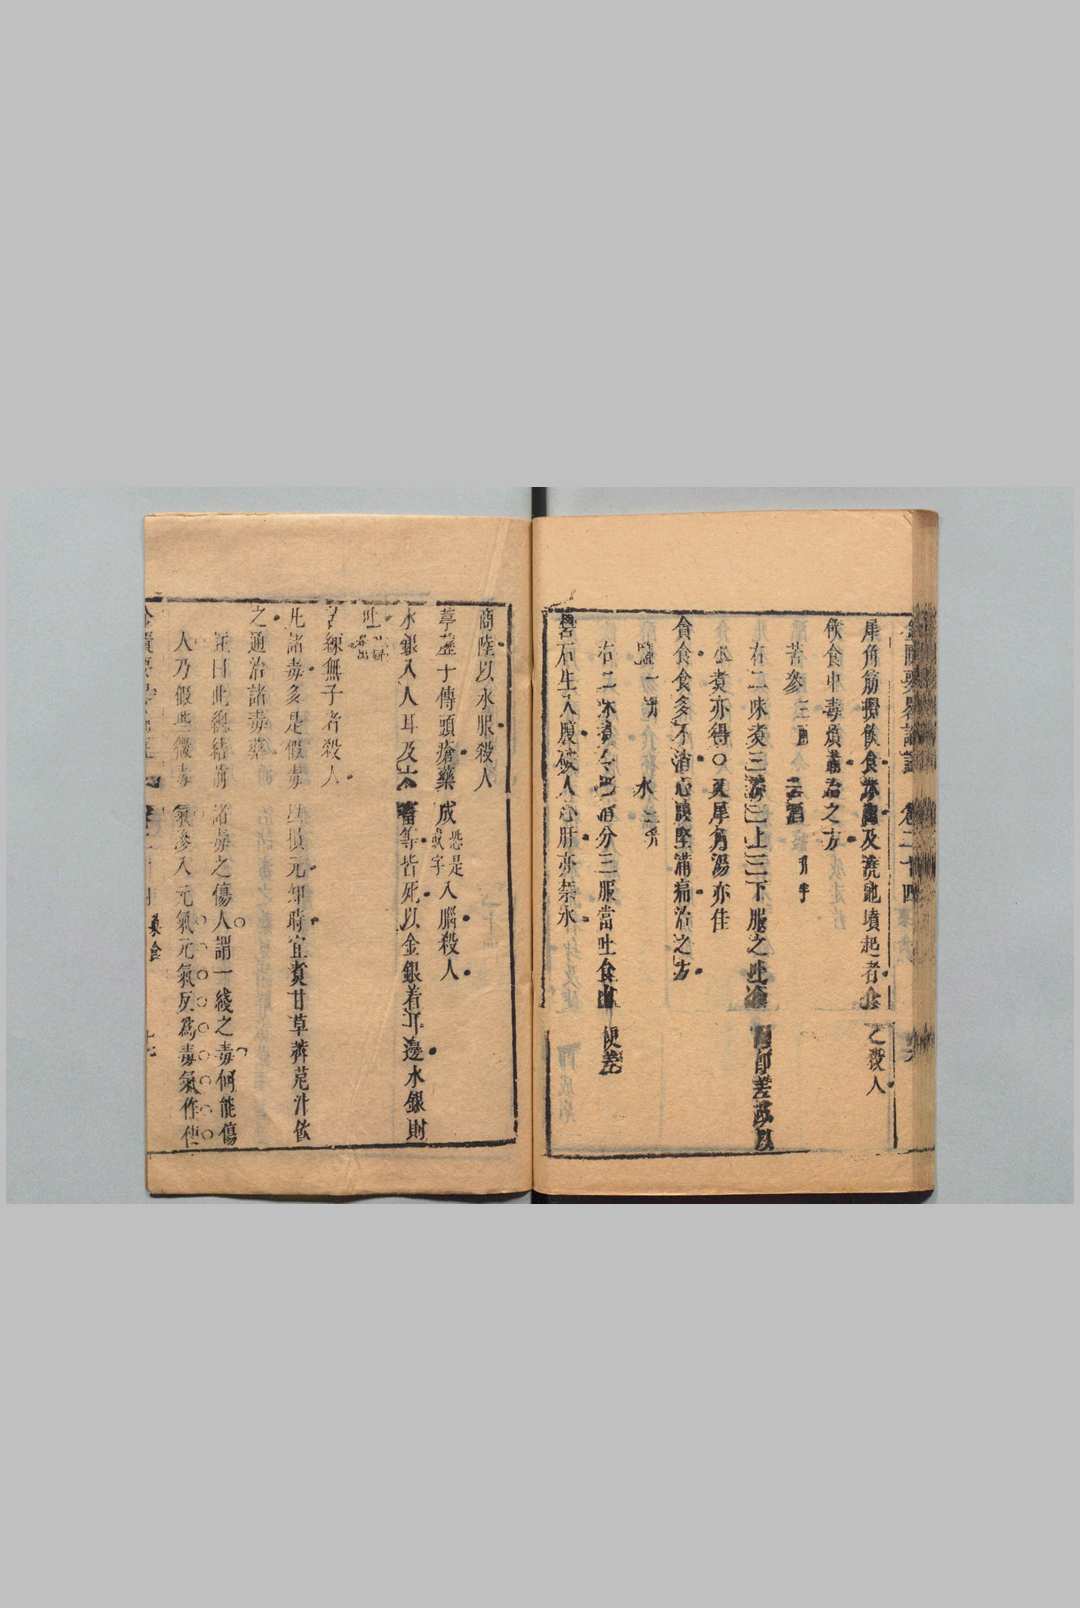 犀角筋攪飲食沫出及澆地墳起者食之殺人
飲食中毒煩滿治之方
苦參三兩 苦酒升半
右二味煮三沸三上三下服之吐食出即差或以
水煮亦得○又犀角湯亦佳
貪食食多不消心腹堅滿痛治之方
鹽一升 水三升
右二味煮令鹽消分三服當吐食出便差
礬石生入腹破人心肝亦禁水
商陸以水服殺人
葶藶子傅頭瘡藥成恐是或字入腦殺人
水銀入人耳及六畜等皆死以金銀着耳邊水銀則
吐
苦練無子者殺人
凡諸毒多是假毒以損元知時宜煑甘草薺苨汁飲
之通治諸毒藥
諸毒之傷人謂一綫之毒何能傷
人乃假些微毒氣參入元氣元氣反爲毒氣作使